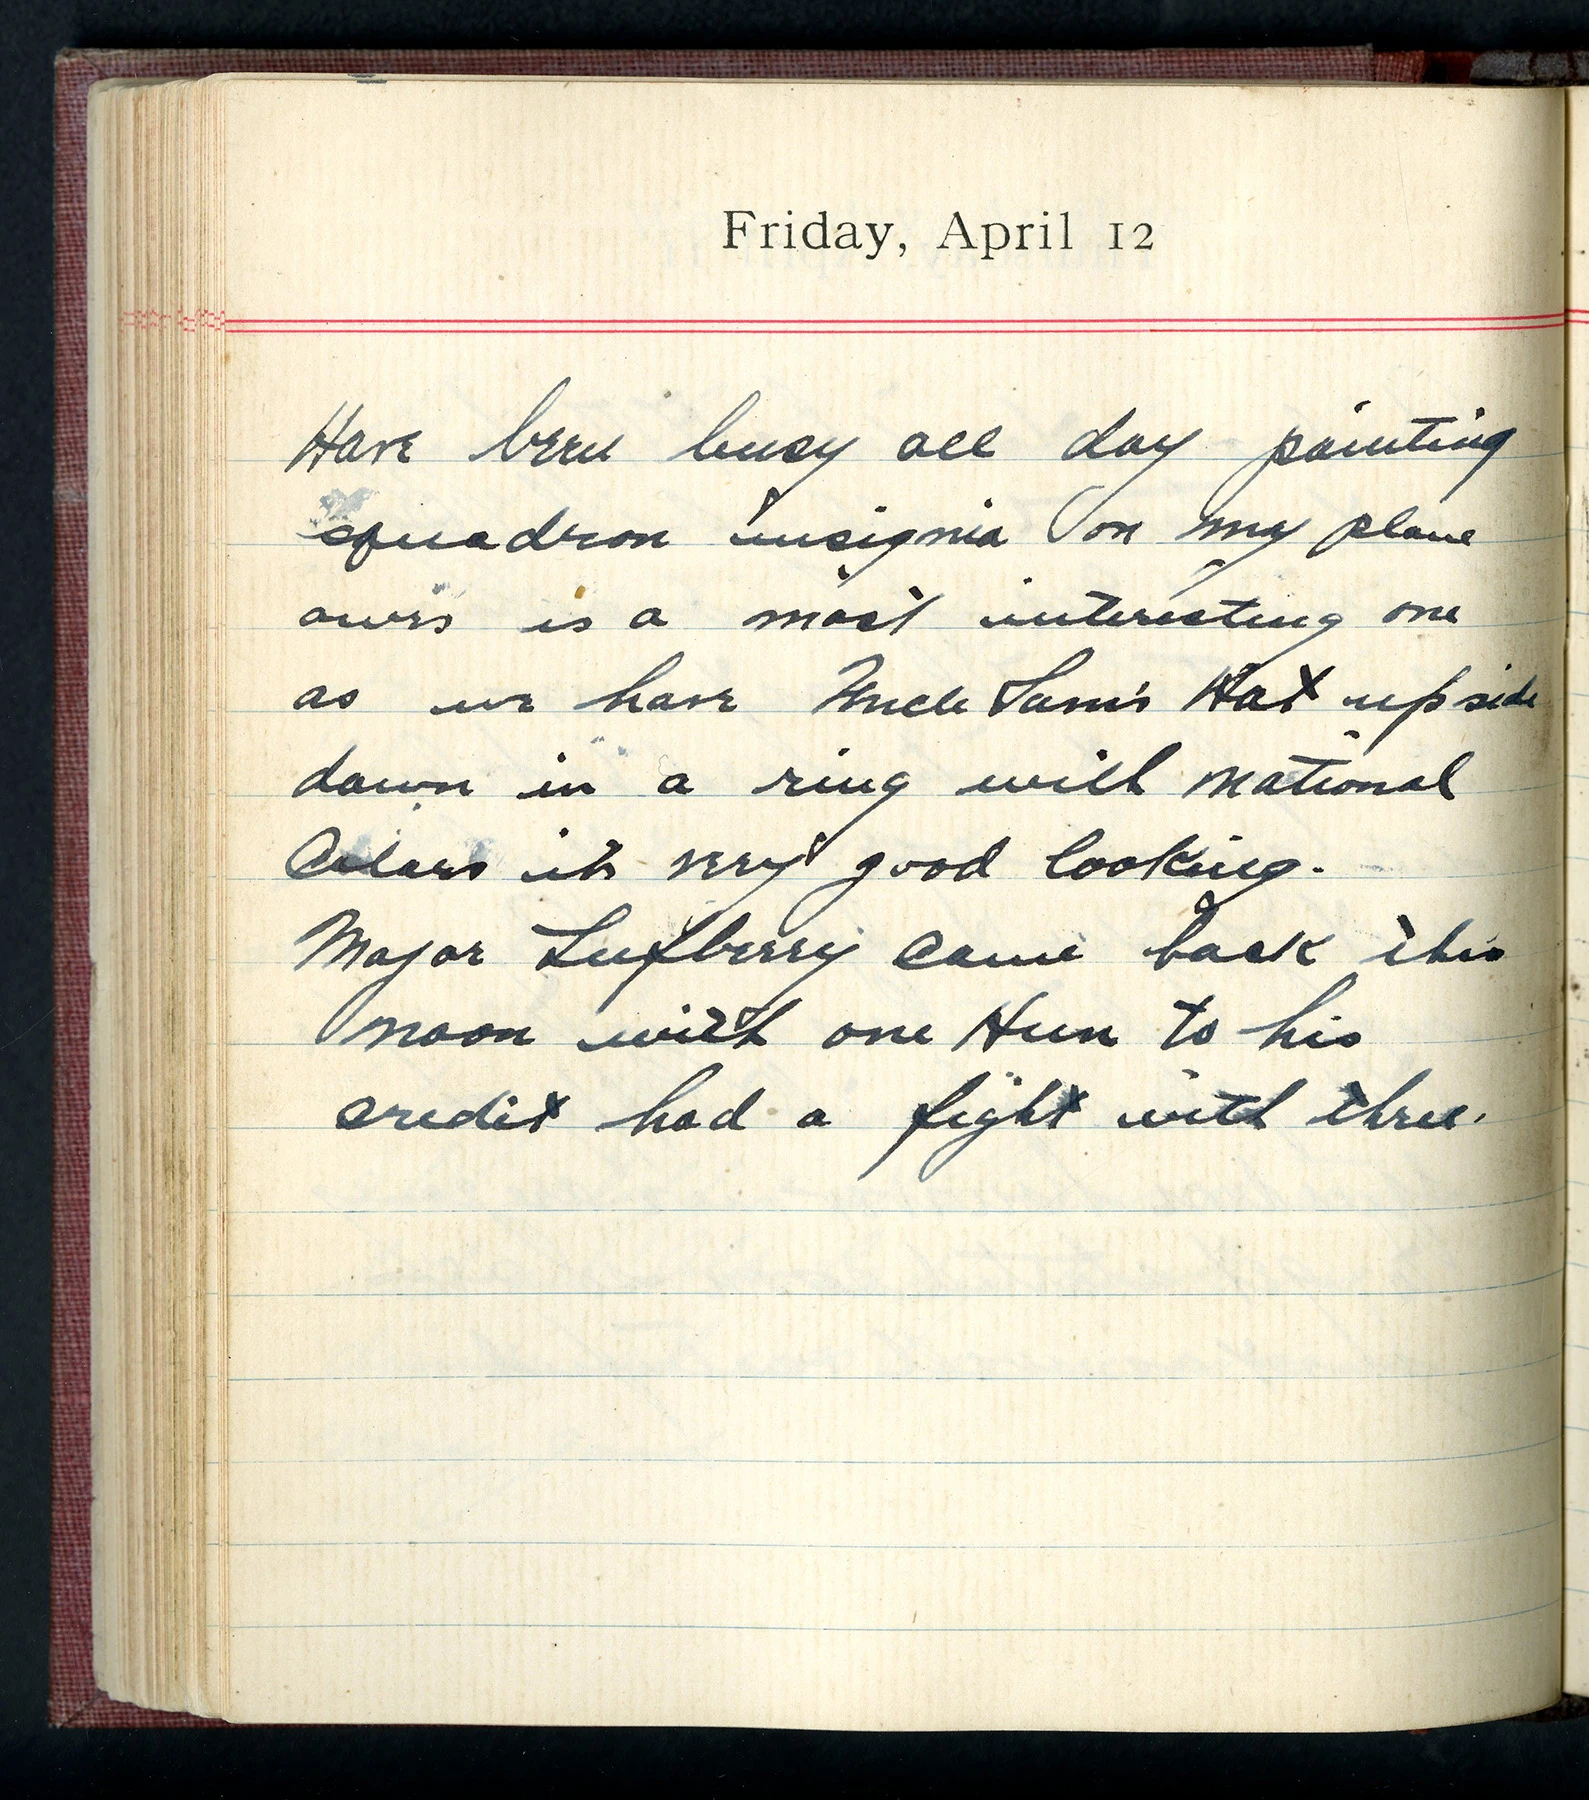 Friday, April 12
Have been busy all day painting
squadron insignia on my plane
ours is a most interesting one
as we have Uncle Sam's Hat upside
down in a ring with national
Colors its very good looking.
Major Lufberry came back this
noon with one Hun to his
credit had a fight with three.